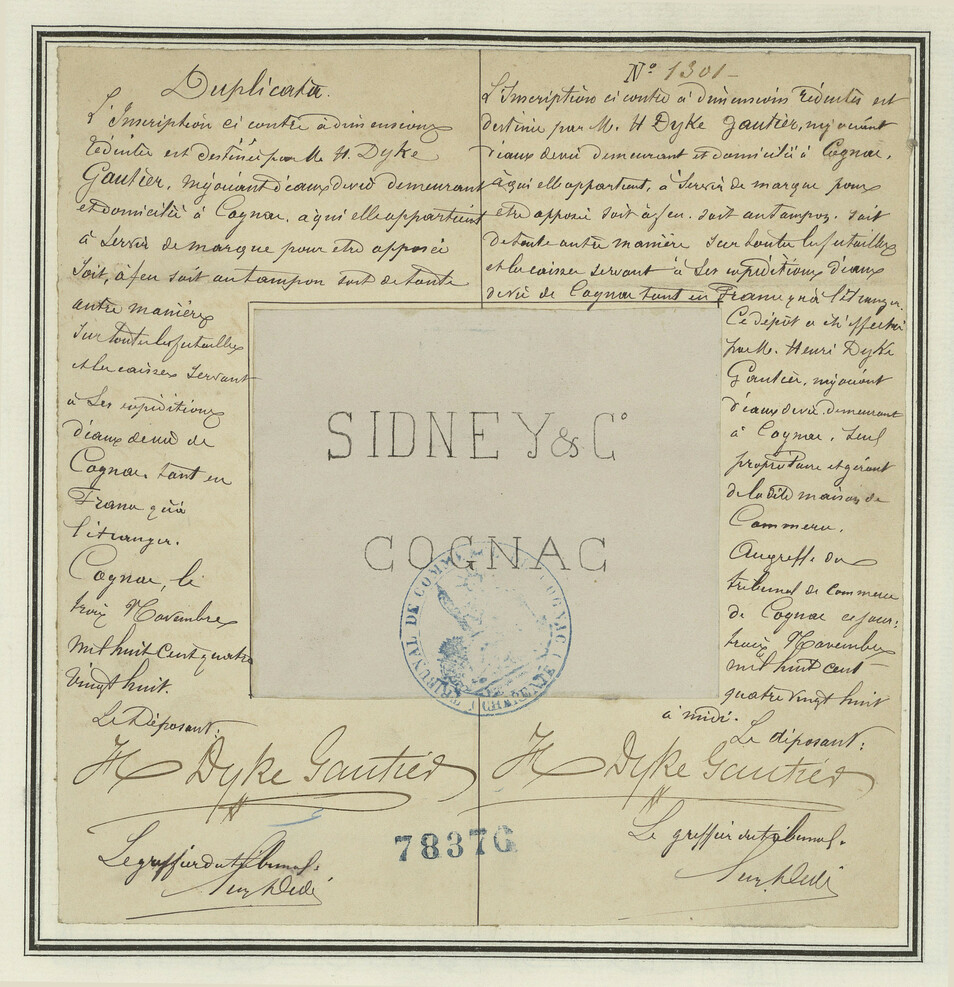 Duplicata.
L'Inscription ci contre à dimensions
réduites est destinée par M. H. Dyke
Gautier, négociant d'eaux de vie demeurant
et domicilié à Cognac, à qui elle appartient
à servir de marque pour être apposée
soit, à feu soit au tampon soit de toute
autre manière
sur toutes les futailles
et les caisses servant
à ses expéditions
d'eaux de vie de
Cognac, tant en
France qu'à
l'étranger.
Cognac, le
trois Novembre
mil huit cent quatre
vingt huit.
Le Déposant:
H Dyke Gautier
Le greffier du tribunal.
N° 1301-
L'Inscription ci contre à dimensions réduites est
destinée par M. H Dyke Gautier, négociant
d'eaux de vie demeurant et domicilié à Cognac,
à qui elle appartient, à servir de marque pour
être apposée soit à feu, soit au tampon, soit
de toute autre manière sur toutes les futailles
et les caisses servant à ses expéditions d'eaux
de vie de Cognac tant en France qu'à l'étranger.
Ce dépôt a été effectué
par M. Henri Dyke
Gautier, négociant
d'eaux de vie demeurant
à Cognac, seul
propriétaire et gérant
de la dite maison de
Commerce.
Au greffe du
tribunal de Commerce
de Cognac ce jour:
trois Novembre
mil huit cent
quatre vingt huit
à midi.
Le déposant:
H Dyke Gautier
Le greffier du tribunal.
SIDNEY & C°
COGNAC
TRIBUNAL DE COMMERCE COGNAC (CHARENTE)
78376